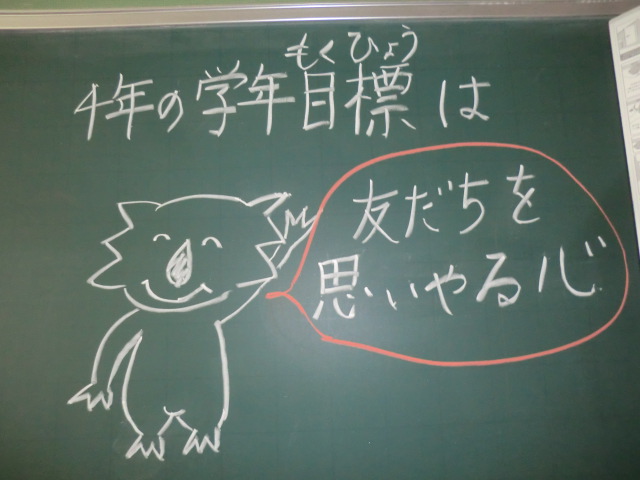 もくひょう
4年の学年目標は
友だちを
思いやる心